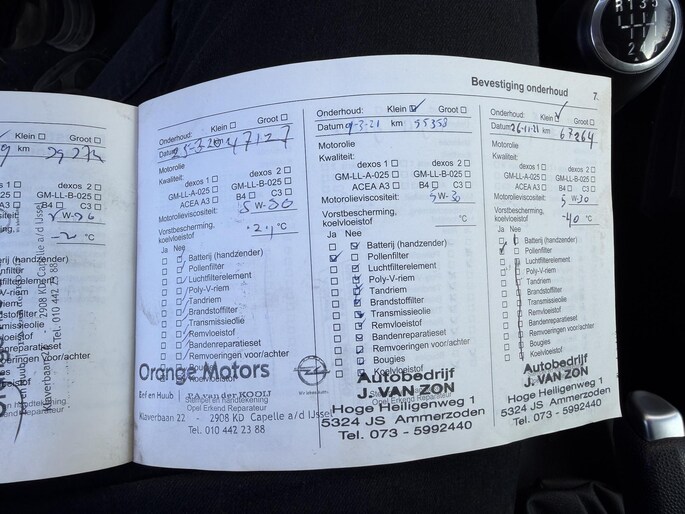 Bevestiging onderhoud 7.
Klein Groot
km 29272
dexos 2
GM-LL-B-025
B4 C3
W-30
-2 °C
Batterij (handzender)
Klaverbaan 22 - 2908 KD Capelle a/d IJssel
Tel. 010 442 23 88
Onderhoud: Klein Groot
Datum km 47127
Motorolie
Kwaliteit:
dexos 1 dexos 2
GM-LL-A-025 GM-LL-B-025
ACEA A3 B4 C3
Motorolieviscositeit: 5 W-30
Vorstbescherming,
koelvloeistof °C
Ja Nee
Batterij (handzender)
Pollenfilter
Luchtfilterelement
Poly-V-riem
Tandriem
Brandstoffilter
Transmissieolie
Remvloeistof
Bandenreparatieset
Remvoeringen voor/achter
Bougies
Koelvloeistof
Orange Motors
Eef en Huub P.A van der KOOIJ
Stempel en handtekening
Opel Erkend Reparateur
Klaverbaan 22 - 2908 KD Capelle a/d IJssel
Tel. 010 442 23 88
Onderhoud: Klein Groot
Datum 9-3-21 km 55358
Motorolie
Kwaliteit:
dexos 1 dexos 2
GM-LL-A-025 GM-LL-B-025
ACEA A3 B4 C3
Motorolieviscositeit: 5 W-30
Vorstbescherming,
koelvloeistof °C
Ja Nee
Batterij (handzender)
Pollenfilter
Luchtfilterelement
Poly-V-riem
Tandriem
Brandstoffilter
Transmissieolie
Remvloeistof
Bandenreparatieset
Remvoeringen voor/achter
Bougies
Koelvloeistof
Autobedrijf
J. VAN ZON
Opel Erkend Reparateur
Hoge Heiligenweg 1
5324 JS Ammerzoden
Tel. 073 - 5992440
Onderhoud: Klein Groot
Datum 26-11-21 km 67264
Motorolie
Kwaliteit:
dexos 1 dexos 2
GM-LL-A-025 GM-LL-B-025
ACEA A3 B4 C3
Motorolieviscositeit: 5 W-30
Vorstbescherming,
koelvloeistof -40 °C
Ja Nee
Batterij (handzender)
Pollenfilter
Luchtfilterelement
Poly-V-riem
Tandriem
Brandstoffilter
Transmissieolie
Remvloeistof
Bandenreparatieset
Remvoeringen voor/achter
Bougies
Koelvloeistof
Autobedrijf
J. VAN ZON
Opel Erkend Reparateur
Hoge Heiligenweg 1
5324 JS Ammerzoden
Tel. 073 - 5992440
R 1 3 5
2